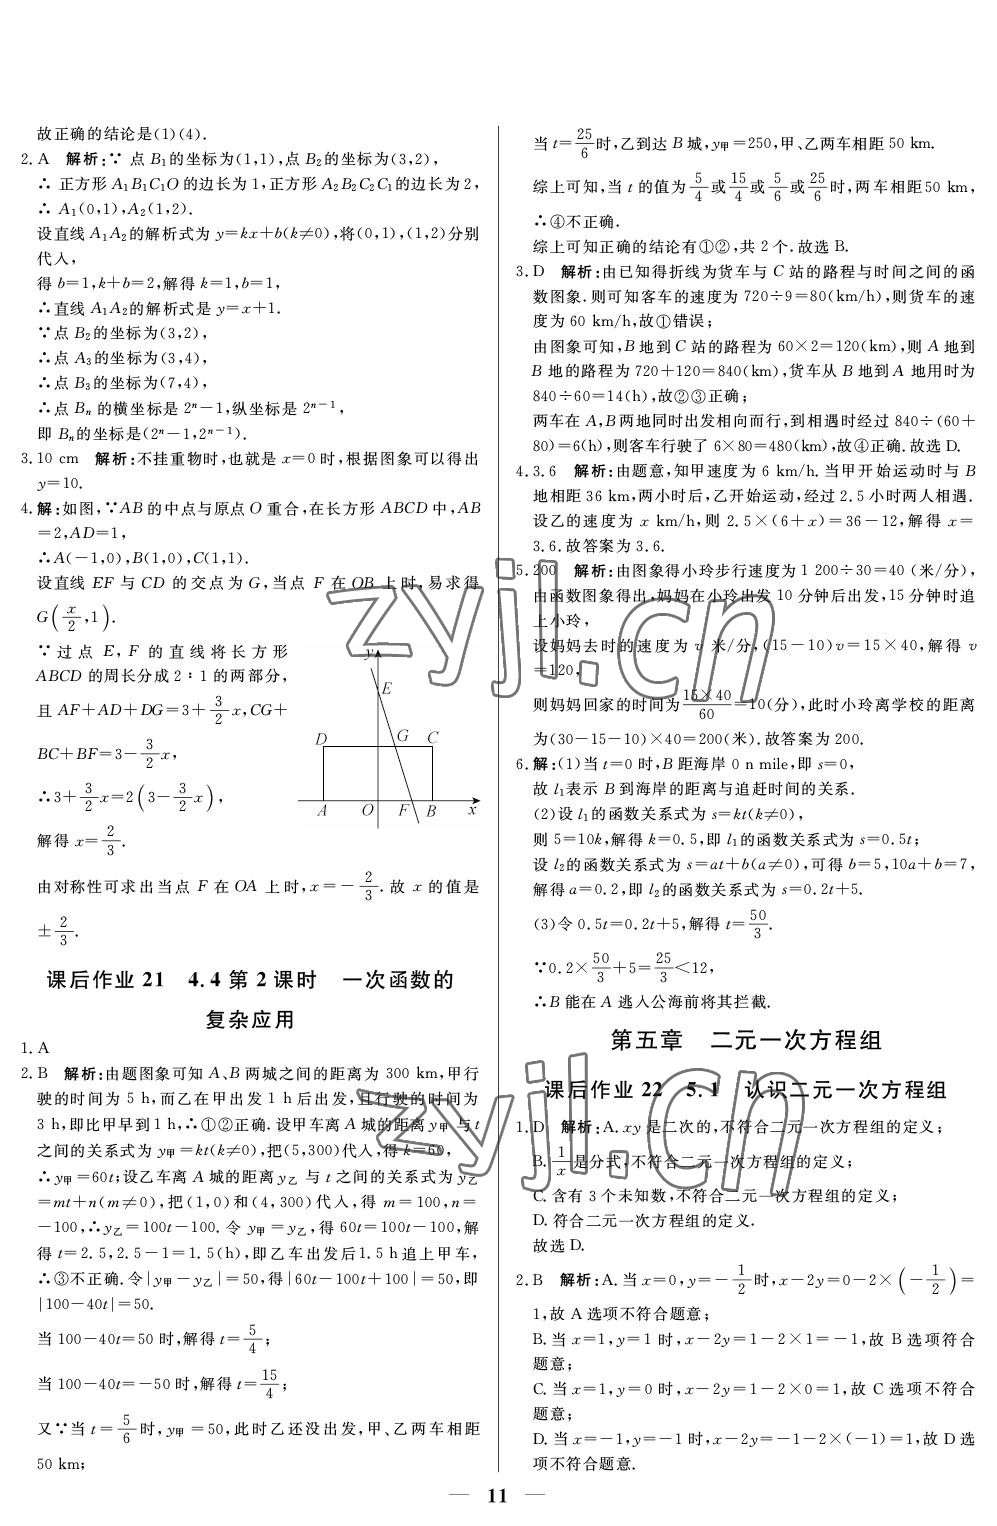 故正确的结论是(1)(4).
2.A 解析:∵ 点 B₁的坐标为(1,1),点 B₂的坐标为(3,2),
∴ 正方形 A₁B₁C₁O 的边长为 1,正方形 A₂B₂C₂C₁的边长为 2,
∴ A₁(0,1),A₂(1,2).
设直线 A₁A₂的解析式为 y=kx+b(k≠0),将(0,1),(1,2)分别
代入,
得 b=1,k+b=2,解得 k=1,b=1,
∴直线 A₁A₂的解析式是 y=x+1.
∵点 B₂的坐标为(3,2),
∴点 A₃的坐标为(3,4),
∴点 B₃的坐标为(7,4),
∴点 Bₙ 的横坐标是 2ⁿ-1,纵坐标是 2ⁿ⁻¹,
即 Bₙ的坐标是(2ⁿ-1,2ⁿ⁻¹).
3.10 cm 解析:不挂重物时,也就是 x=0 时,根据图象可以得出
y=10.
4.解:如图,∵AB 的中点与原点 O 重合,在长方形 ABCD 中,AB
=2,AD=1,
∴A(-1,0),B(1,0),C(1,1).
设直线 EF 与 CD 的交点为 G,当点 F 在 OB 上时,易求得
G(x/2,1).
∵过点 E,F 的直线将长方形
ABCD 的周长分成 2∶1 的两部分,
且 AF+AD+DG=3+3/2x,CG+
BC+BF=3-3/2x,
∴3+3/2x=2(3-3/2x),
解得 x=2/3.
y
E
D G C
A O F B x
由对称性可求出当点 F 在 OA 上时,x=-2/3.故 x 的值是
±2/3.
课后作业 21 4.4 第 2 课时 一次函数的
复杂应用
1.A
2.B 解析:由题图象可知 A、B 两城之间的距离为 300 km,甲行
驶的时间为 5 h,而乙在甲出发 1 h 后出发,且行驶的时间为
3 h,即比甲早到 1 h,∴①②正确.设甲车离 A 城的距离 y甲 与 t
之间的关系式为 y甲=kt(k≠0),把(5,300)代入,得 k=60,
∴y甲=60t;设乙车离 A 城的距离 y乙 与 t 之间的关系式为 y乙
=mt+n(m≠0),把(1,0)和(4,300)代入,得 m=100,n=
-100,∴y乙=100t-100.令 y甲=y乙,得 60t=100t-100,解
得 t=2.5,2.5-1=1.5(h),即乙车出发后1.5 h追上甲车,
∴③不正确.令|y甲-y乙|=50,得|60t-100t+100|=50,即
|100-40t|=50.
当 100-40t=50 时,解得 t=5/4;
当 100-40t=-50 时,解得 t=15/4;
又∵当 t=5/6时,y甲=50,此时乙还没出发,甲、乙两车相距
50 km;
当 t=25/6时,乙到达 B 城,y甲=250,甲、乙两车相距 50 km.
综上可知,当 t 的值为5/4或15/4或5/6或25/6时,两车相距50 km,
∴④不正确.
综上可知正确的结论有①②,共 2 个.故选 B.
3.D 解析:由已知得折线为货车与 C 站的路程与时间之间的函
数图象.则可知客车的速度为 720÷9=80(km/h),则货车的速
度为 60 km/h,故①错误;
由图象可知,B 地到 C 站的路程为 60×2=120(km),则 A 地到
B 地的路程为 720+120=840(km),货车从 B 地到 A 地用时为
840÷60=14(h),故②③正确;
两车在 A,B 两地同时出发相向而行,到相遇时经过 840÷(60+
80)=6(h),则客车行驶了 6×80=480(km),故④正确.故选 D.
4.3.6 解析:由题意,知甲速度为 6 km/h.当甲开始运动时与 B
地相距 36 km,两小时后,乙开始运动,经过 2.5 小时两人相遇.
设乙的速度为 x km/h,则 2.5×(6+x)=36-12,解得 x=
3.6.故答案为 3.6.
5.200 解析:由图象得小玲步行速度为 1 200÷30=40 (米/分),
由函数图象得出,妈妈在小玲出发 10 分钟后出发,15 分钟时追
上小玲,
设妈妈去时的速度为 v 米/分,(15-10)v=15×40,解得 v
=120,
则妈妈回家的时间为15×40/60=10(分),此时小玲离学校的距离
为(30-15-10)×40=200(米).故答案为 200.
6.解:(1)当 t=0 时,B 距海岸 0 n mile,即 s=0,
故 l₁表示 B 到海岸的距离与追赶时间的关系.
(2)设 l₁的函数关系式为 s=kt(k≠0),
则 5=10k,解得 k=0.5,即 l₁的函数关系式为 s=0.5t;
设 l₂的函数关系式为 s=at+b(a≠0),可得 b=5,10a+b=7,
解得 a=0.2,即 l₂的函数关系式为 s=0.2t+5.
(3)令 0.5t=0.2t+5,解得 t=50/3.
∵0.2×50/3+5=25/3<12,
∴B 能在 A 逃入公海前将其拦截.
第五章 二元一次方程组
课后作业 22 5.1 认识二元一次方程组
1.D 解析:A.xy 是二次的,不符合二元一次方程组的定义;
B.1/x是分式,不符合二元一次方程组的定义;
C.含有 3 个未知数,不符合二元一次方程组的定义;
D.符合二元一次方程组的定义.
故选 D.
2.B 解析:A.当 x=0,y=-1/2时,x-2y=0-2×(-1/2)=
1,故 A 选项不符合题意;
B.当 x=1,y=1 时,x-2y=1-2×1=-1,故 B 选项符合
题意;
C.当 x=1,y=0 时,x-2y=1-2×0=1,故 C 选项不符合
题意;
D.当 x=-1,y=-1 时,x-2y=-1-2×(-1)=1,故 D 选
项不符合题意.
— 11 —
zyjl.cn
zyjl.cn